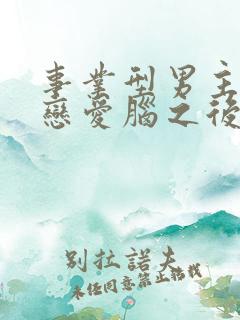 事業型男主
戀愛腦之後
別拉諾夫
未經同意禁止轉載